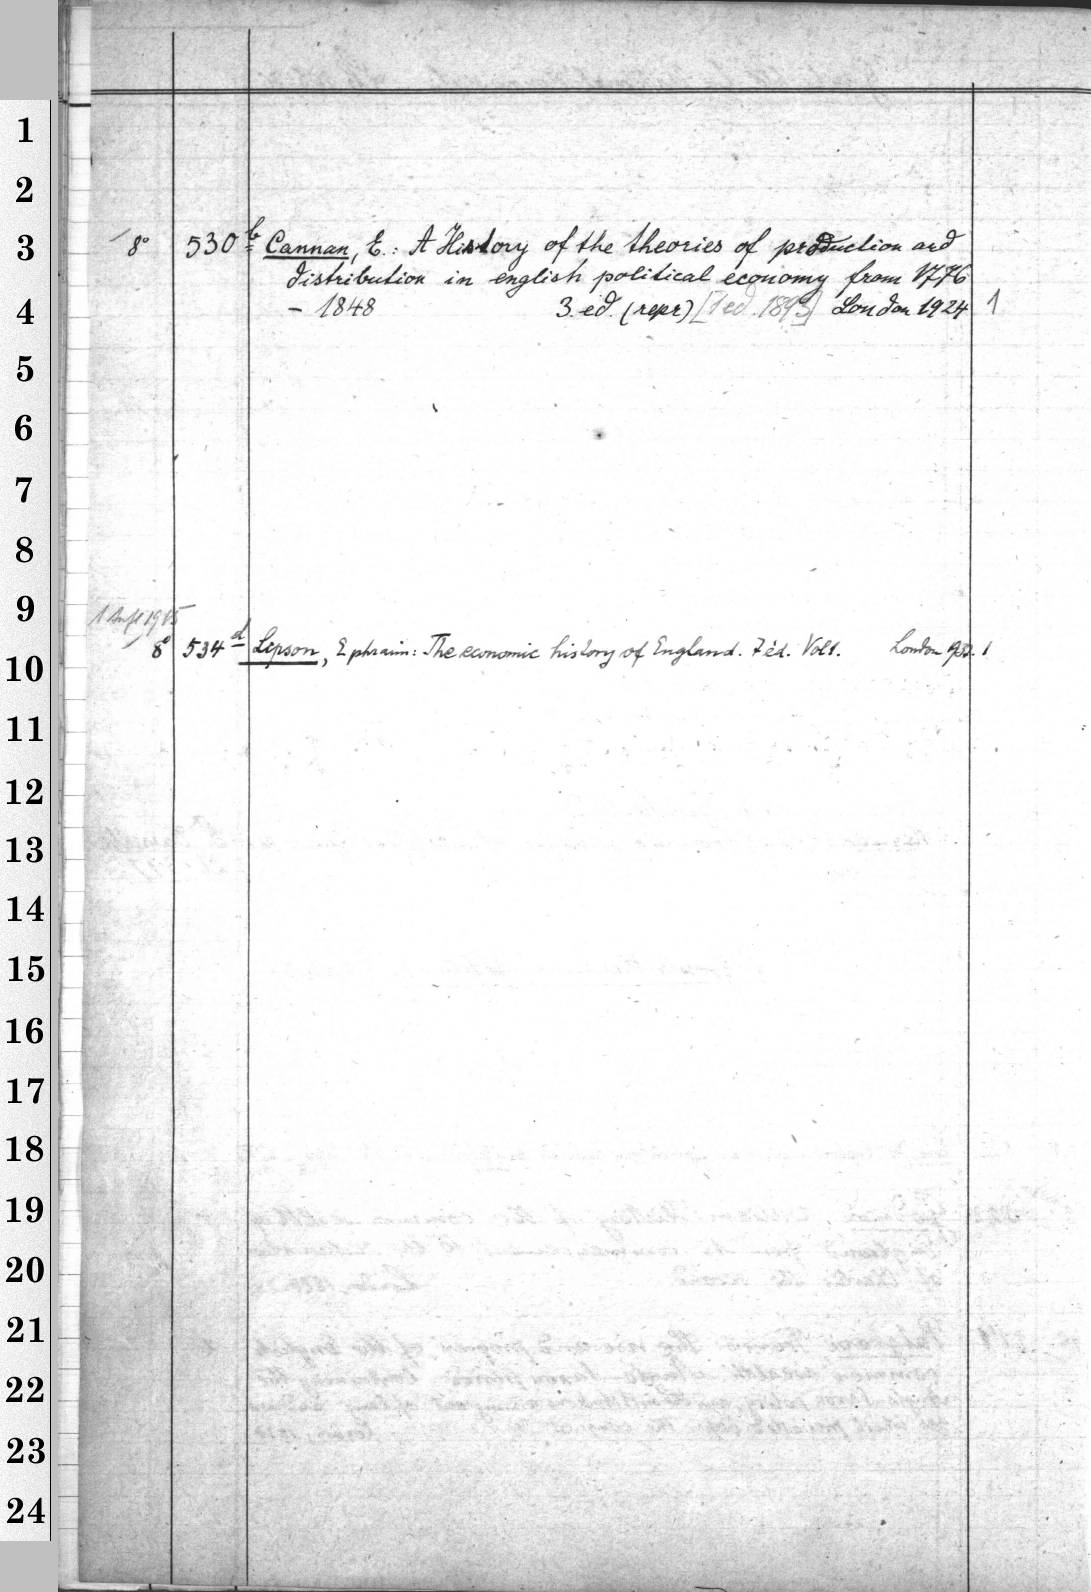 1
2
3
4
5
6
7
8
9
10
11
12
13
14
15
16
17
18
19
20
21
22
23
24
8° 530 b Cannan, E.: A History of the theories of production and
distribution in english political economy from 1776
- 1848 3. ed. (repr) [1 ed. 1893] London 1924 1
1 Aufl 1915
8° 534 d Lipson, Ephraim: The economic history of England. 7 ed. Vol 1. London 1